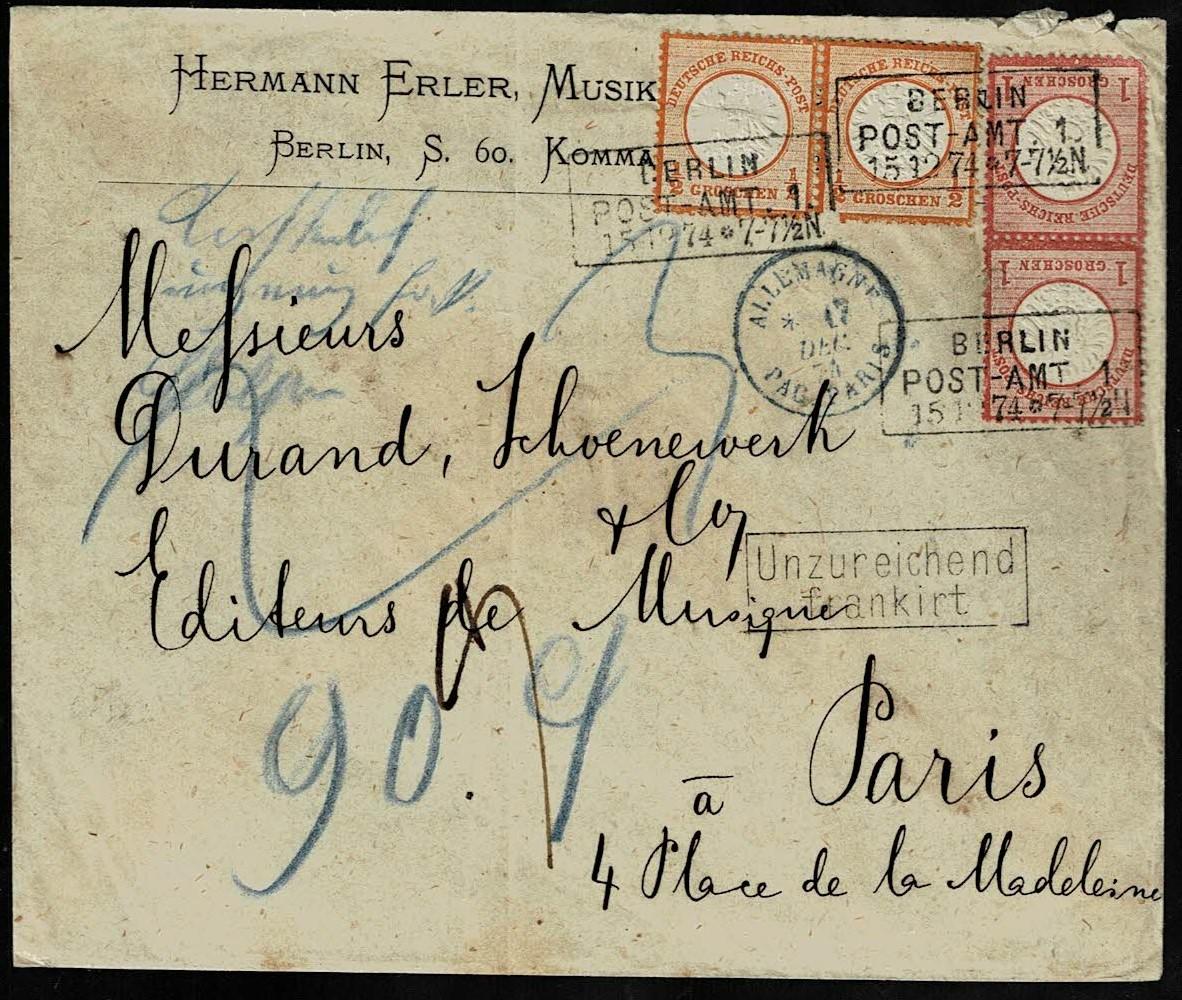 HERMANN ERLER, MUSIK
BERLIN, S. 60. KOMMA
DEUTSCHE REICHS-POST
1/2 GROSCHEN 1/2
DEUTSCHE REICHS-POST
1/2 GROSCHEN 1/2
1 GROSCHEN 1
DEUTSCHE REICHS-POST
1 GROSCHEN 1
DEUTSCHE REICHS-POST
BERLIN
POST-AMT. 1.
15 12 74 * 7-7½N.
BERLIN
POST-AMT 1.
15 12 74 * 7-7½N.
BERLIN
POST-AMT 1.
15 12 74 * 7-7½N
ALLEMAGNE
17
DEC.
74
PARIS
Messieurs
Durand, Schoenewerk
& Co
Editeurs de Musique
Unzureichend
frankirt
90.
à Paris
4 Place de la Madeleine